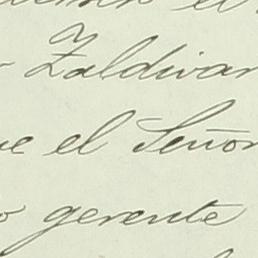 Zaldivar
el Señor
gerente